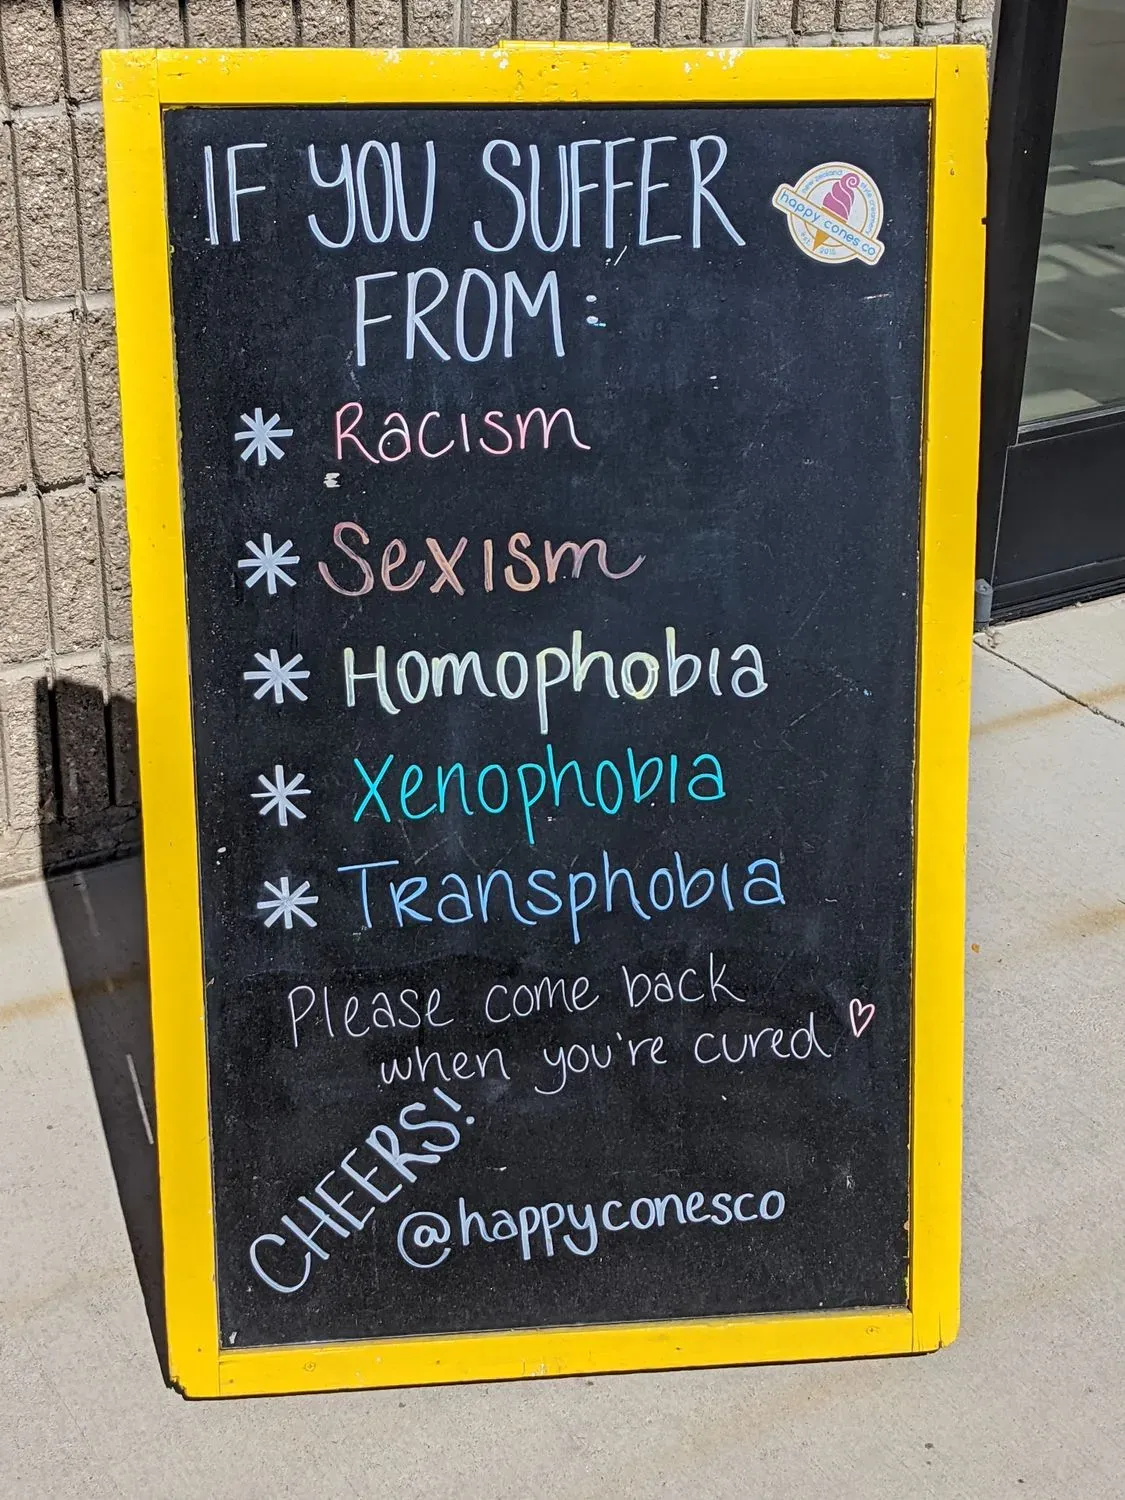 IF YOU SUFFER
new zealand
style icecream
happy cones co
est. 2015
FROM:
* Racism
* Sexism
* Homophobia
* Xenophobia
* Transphobia
Please come back
when you're cured ♡
CHEERS!
@happyconesco